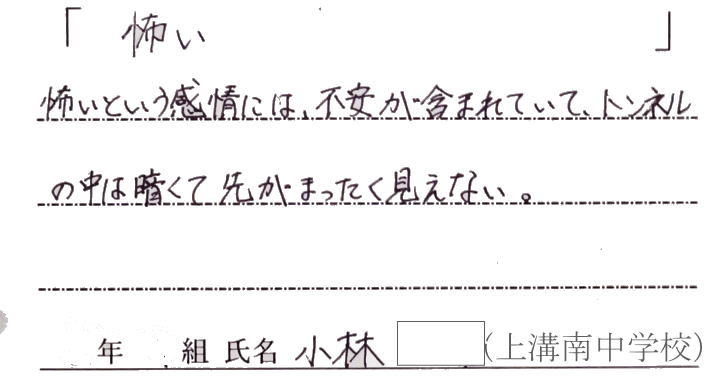 「 怖い 」
怖いという感情には、不安が含まれていて、トンネル
の中は暗くて先がまったく見えない。
年 組 氏名 小林 (上溝南中学校)